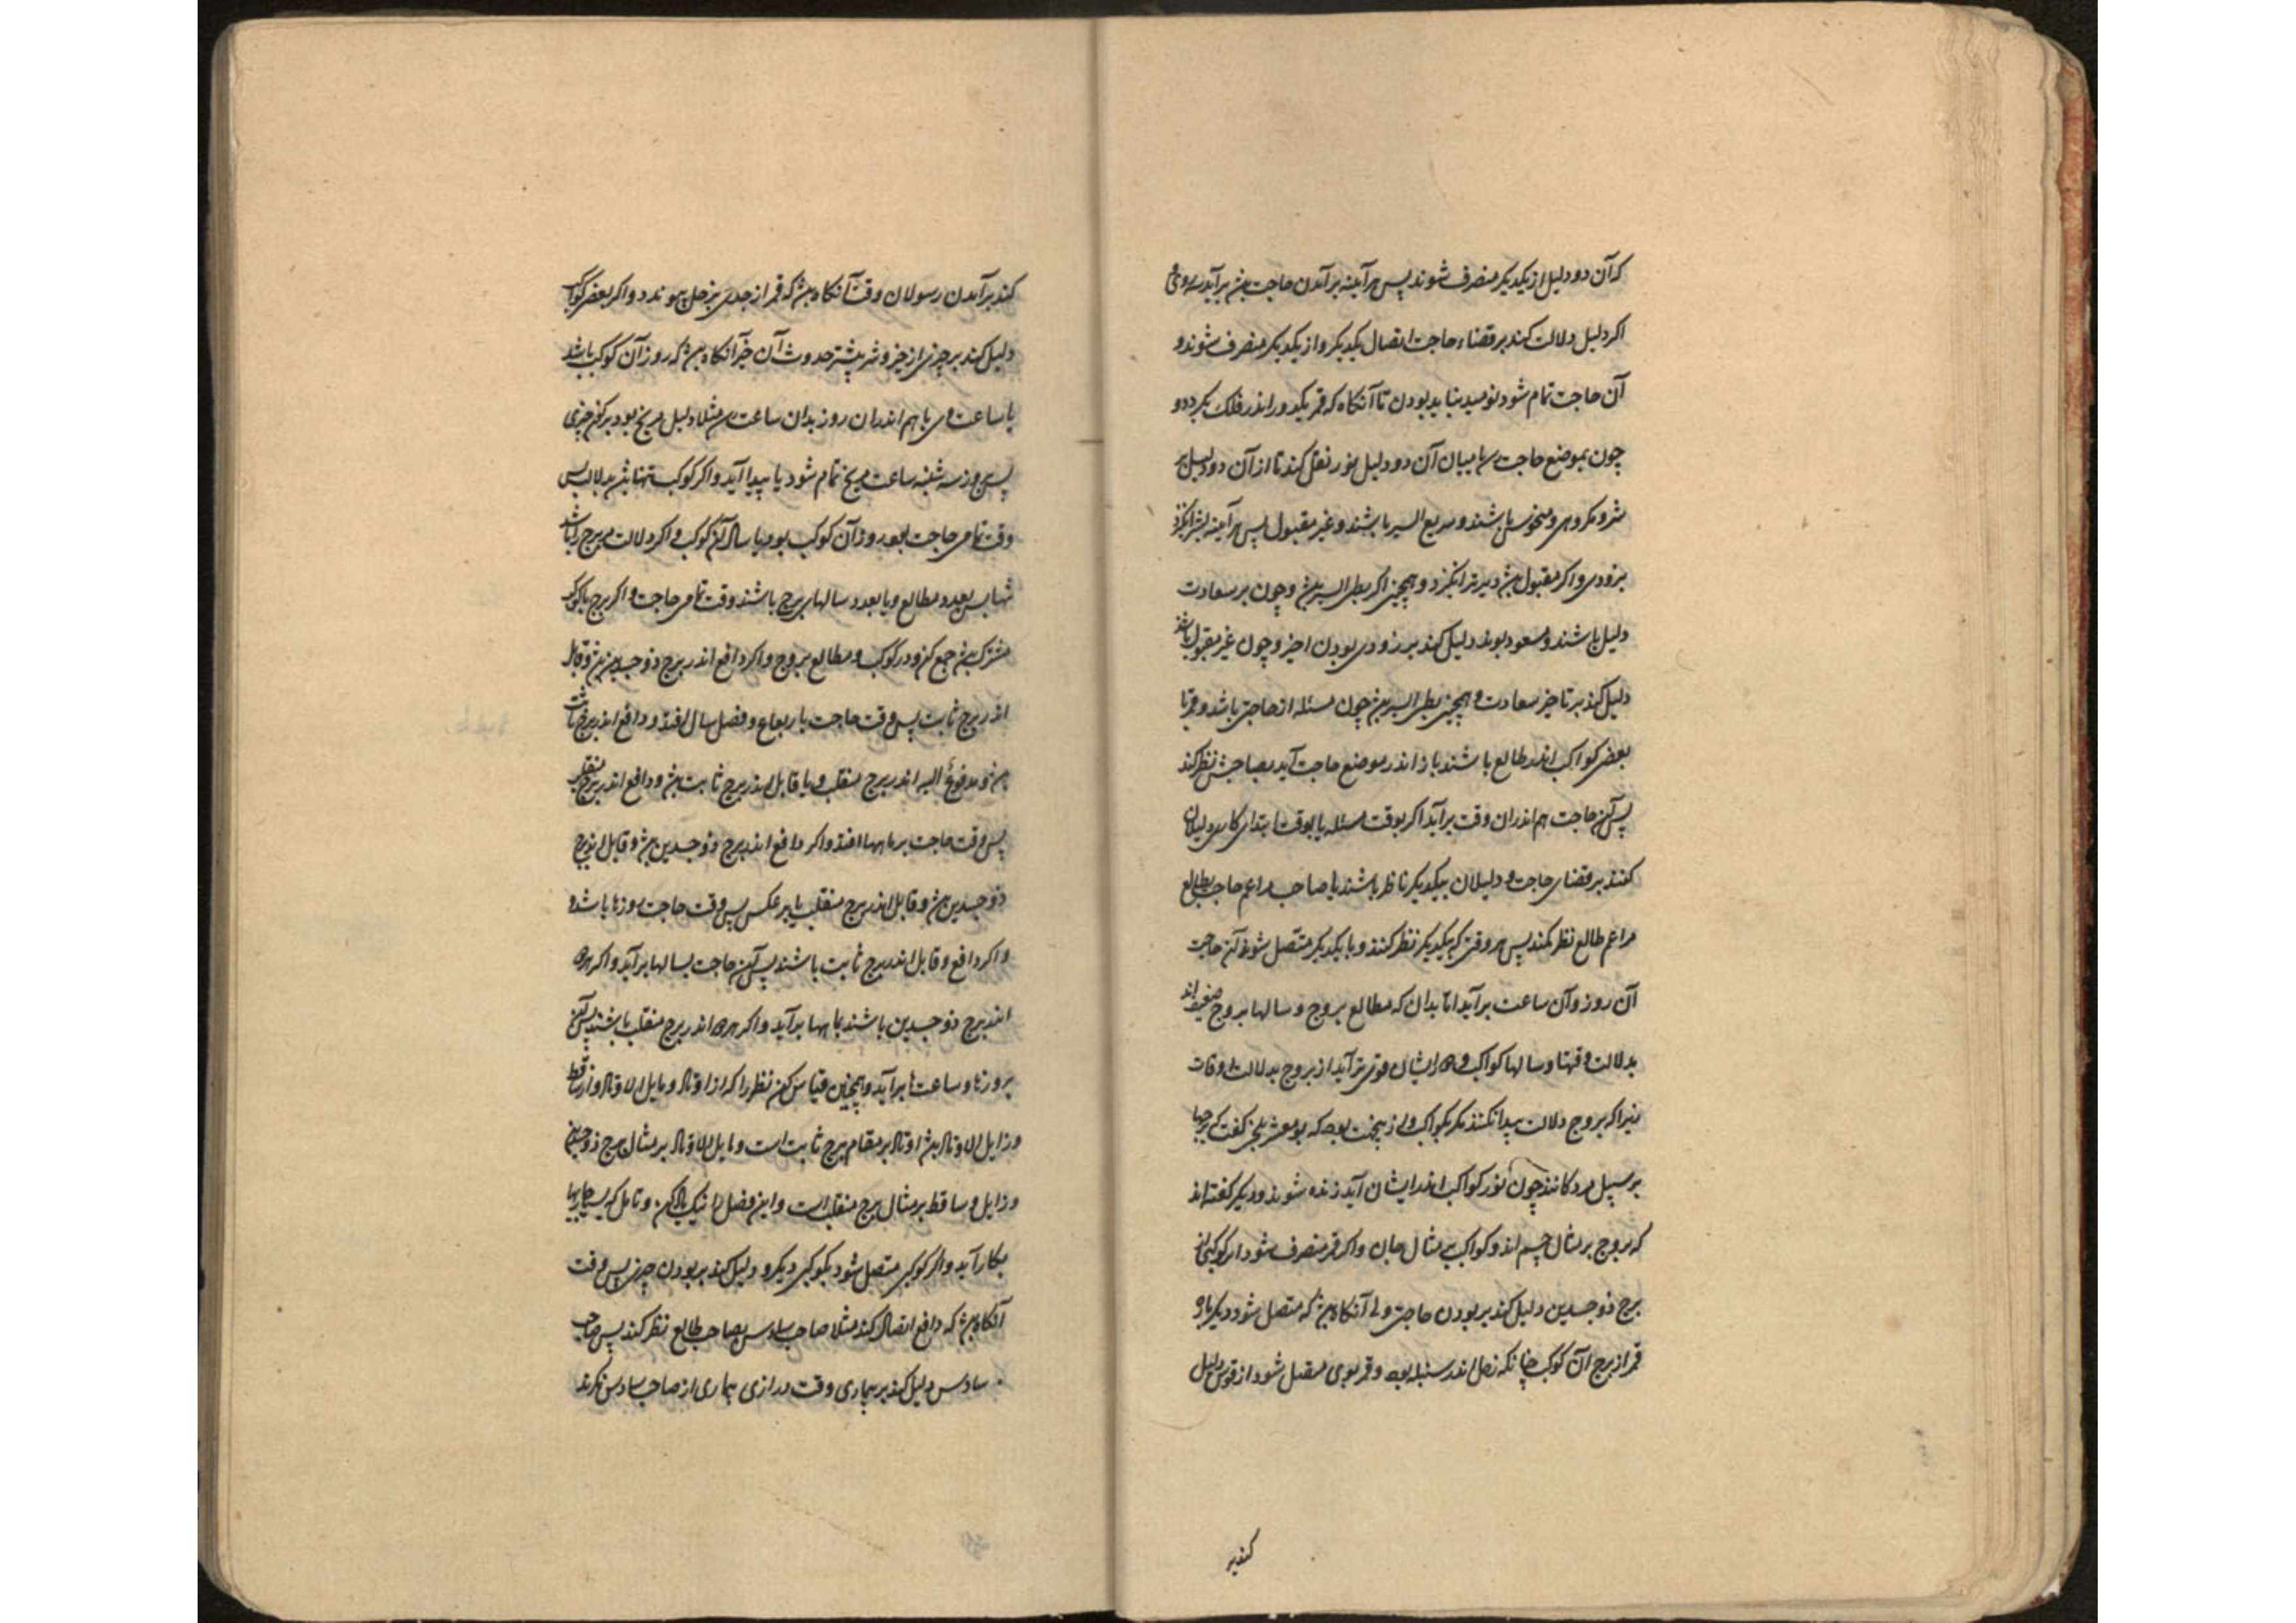 که آن دو دلیل از یکدیکر منصرف شوند پس هر آینه برآمدن حاجت بیش برآید
اکر دلیل دلالت کند بر قضاء حاجت اتصال یکدیکر و از یکدیکر منصرف شوند و
آن حاجت تمام شود نومید نباید بودن تا آنکاه که قمر یکدور اندر فلک بکردد و
چون بموضع حاجت یا میان آن دو دلیل نور نقل کند تا از آن دو دلیل بر
شر و مکروهی و منحوس باشند و سریع السیر باشند و غیر مقبول پس هر آینه
بزودی و اکر مقبول بیش دیرتر انکیزد و همچنین اکر بطی السیر بیش و چون بر سعادت
دلیل باشند و مسعود بوند دلیل کند بر زودی بودن و چون غیر مقبول باشند
دلیل کند بر تاخیر سعادت و همچنین بطی السیر بیش چون مسئله از حاجتی باشد و قمر با
بعضی کواکب اندر طالع باشند یا ز اندر موضع حاجت آید بصاحبش نظر کند
پس آن حاجت هم اندران وقت برآید اکر بوقت مسئله یا بوقت ابتدای کاری دلیلان
کنند بر قضای حاجت و دلیلان بیکدیکر ناظر باشند یا صاحب طالع
مر اعم طالع نظر کند پس هر وقتی که بیکدیکر نظر کنند و با یکدیکر متصل شوند آن حاجت
آن روز و آن ساعت برآید اما بدان که مطالع بروج و سالها بروج ضعیف اند
بدلالت وقتها و سالها کواکب و ایشان قوی تر آید از بروج بدلالت اوقات
زیرا که بروج دلالت پیدا نکنند مکر بکواکب که بومعشر بلخی کفت که برجها
بر سبیل مرد کانند چون نور کواکب اندر ایشان آید زنده شوند و دیکر کفته اند
که بروج بر مثال جسم اند و کواکب بر مثال جان و اکر قمر منصرف شود از کوکبی از
برج ذو جسدین دلیل کند بر بودن حاجتی ولی آنکاه بیش که متصل شود دیکر باره
قمر از برج آن کوکب چنانکه زحل اندر سنبله بود و قمر بوی متصل شود از قوس دلیل
کند بر
کند برآمدن رسولان وقت آنکاه بیش که قمر از جدی بزحل پیوندد و اکر بعضی کواکب
دلیل کند بر چیزی از خیر و شر بیشتر حدوث آن خبر آنکاه بیش که روز آن کوکب باشد
یا ساعت وی یا هم اندران روز بدان ساعت مثلا دلیل مریخ بود بر کون چیزی
پس روز سه شنبه ساعت مریخ تمام شود یا پیدا آید و اکر کوکب تنها بیش بدلالت پس
وقت تمامی حاجت بود روز آن کوکب بود یا سال آن کوکب و اکر دلالت مر برج را باشد
تنها پس بعدد مطالع و یا بعدد سالهای برج باشند وقت تمامی حاجت و اکر برج با کوکب
مشترک بیش جمع کن دور کوکب و مطالع بروج و اکر دافع اندر برج ذو جسدین بیش و قابل
اندر برج ثابت پس وقت حاجت با رباع و فصل سال افتد و دافع اندر برج ثابت
بیش و مدفوع الیه اندر برج منقلب و یا قابل اندر برج ثابت بیش و دافع اندر برج منقلب
پس وقت حاجت بر ماهها افتد و اکر دافع اندر برج ذو جسدین بیش و قابل اندر برج
ذو جسدین بیش و قابل اندر برج منقلب یا بر عکس پس وقت حاجت روزها باشد
و اکر دافع و قابل اندر برج ثابت باشند پس آن حاجت بسالها برآید و اکر هر دو
اندر برج ذو جسدین باشند بماهها برآید و اکر هر دو اندر برج منقلب باشند پس آن
بروزها و ساعتها برآید و همچنین قیاس کن نظر را که از اوتاد و مایل الاوتاد و از ساقط
و زایل الاوتاد بیش اوتاد بر مقام برج ثابت است و مایل الاوتاد بر مثال برج ذو جسدین
و زایل و ساقط بر مثال برج منقلب است و این فصل را نیک یاد کن و تامل که بسیار جایها
بکار آید و اکر کوکبی متصل شود بکوکبی دیکر و دلیل کند بر بودن چیزی پس وقت
آنکاه بیش که دافع اتصال کند مثلا صاحب سادس بصاحب طالع نظر کند پس صاحب
سادس دلیل کند بر بیماری وقت درازی بیماری از صاحب سادس نکرند